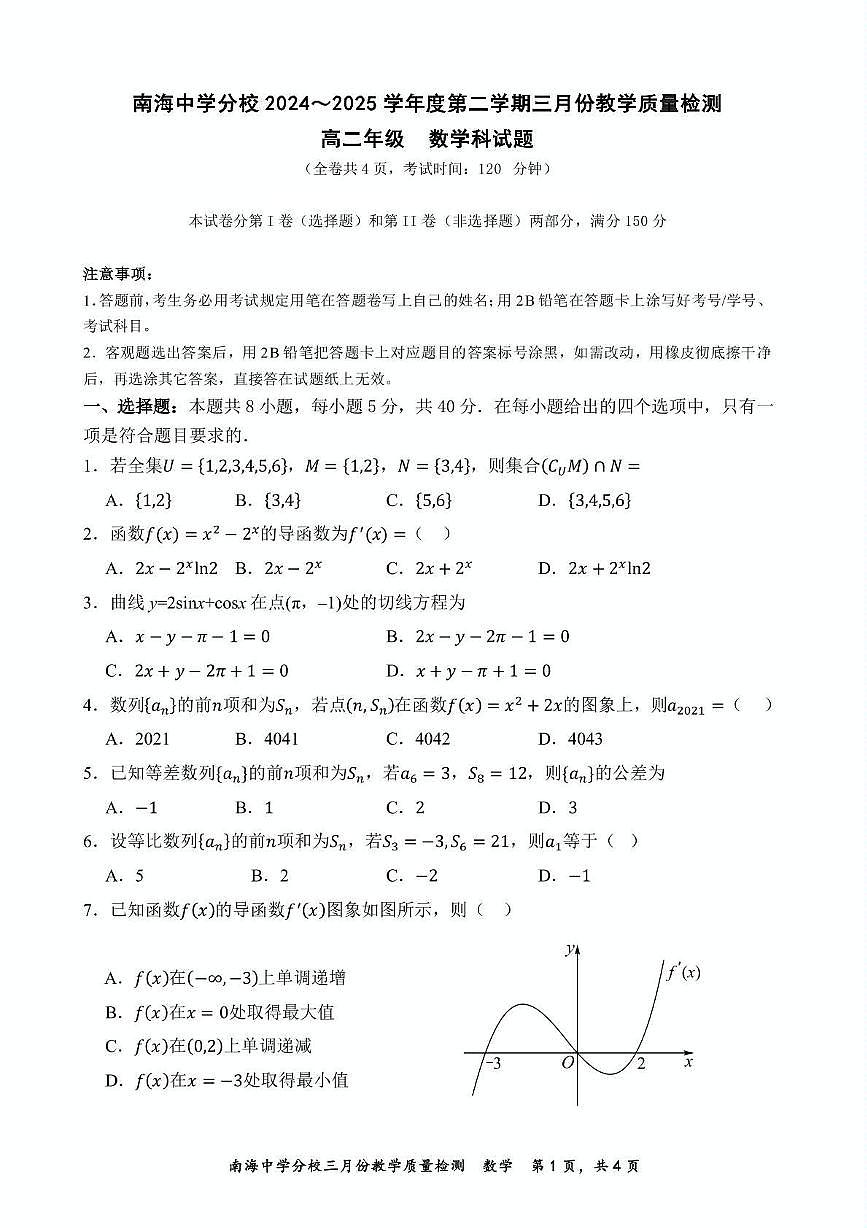 南海中学分校 2024～2025 学年度第二学期三月份教学质量检测
高二年级 数学科试题
（全卷共 4 页，考试时间：120 分钟）
本试卷分第 I 卷（选择题）和第 II 卷（非选择题）两部分，满分 150 分
注意事项：
1.答题前,考生务必用考试规定用笔在答题卷写上自己的姓名;用 2B 铅笔在答题卡上涂写好考号/学号、
考试科目。
2．客观题选出答案后，用 2B 铅笔把答题卡上对应题目的答案标号涂黑，如需改动，用橡皮彻底擦干净
后，再选涂其它答案，直接答在试题纸上无效。
一、选择题：本题共 8 小题，每小题 5 分，共 40 分．在每小题给出的四个选项中，只有一
项是符合题目要求的．
1．若全集U = {1,2,3,4,5,6}，M = {1,2}，N = {3,4}，则集合(C_U M) ∩ N =
A．{1,2} B．{3,4} C．{5,6} D．{3,4,5,6}
2．函数f(x) = x² − 2ˣ的导函数为f′(x) =（ ）
A．2x − 2ˣln2 B．2x − 2ˣ C．2x + 2ˣ D．2x + 2ˣln2
3．曲线 y=2sinx+cosx 在点(π，–1)处的切线方程为
A．x − y − π − 1 = 0 B．2x − y − 2π − 1 = 0
C．2x + y − 2π + 1 = 0 D．x + y − π + 1 = 0
4．数列{aₙ}的前n项和为Sₙ，若点(n, Sₙ)在函数f(x) = x² + 2x的图象上，则a₂₀₂₁ =（ ）
A．2021 B．4041 C．4042 D．4043
5．已知等差数列{aₙ}的前n项和为Sₙ，若a₆ = 3，S₈ = 12，则{aₙ}的公差为
A．−1 B．1 C．2 D．3
6．设等比数列{aₙ}的前n项和为Sₙ，若S₃ = −3, S₆ = 21，则a₁等于（ ）
A．5 B．2 C．−2 D．−1
7．已知函数f(x)的导函数f′(x)图象如图所示，则（ ）
A．f(x)在(−∞, −3)上单调递增
B．f(x)在x = 0处取得最大值
C．f(x)在(0,2)上单调递减
D．f(x)在x = −3处取得最小值
y
f′(x)
−3
O
2
x
南海中学分校三月份教学质量检测 数学 第 1 页，共 4 页